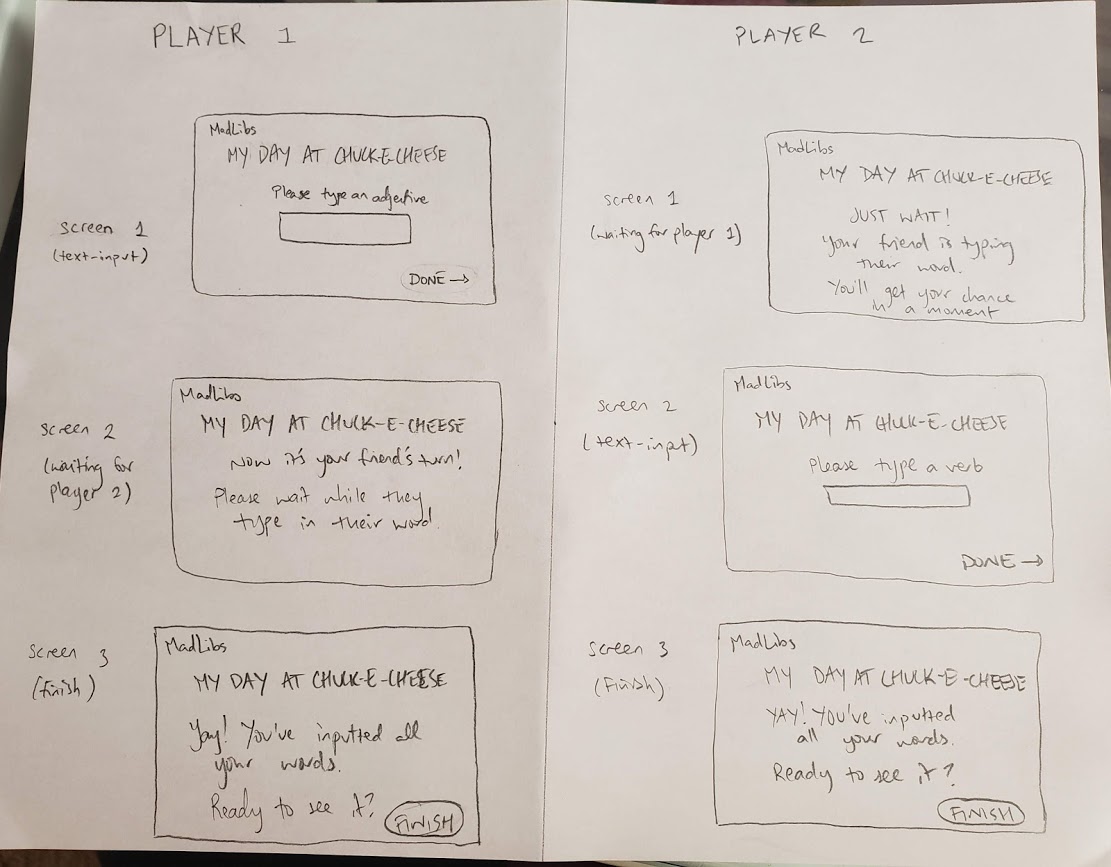 PLAYER 1
screen 1
(text-input)
MadLibs
MY DAY AT CHUCK-E-CHEESE
Please type an adjective
DONE →
screen 2
(waiting for
player 2)
MadLibs
MY DAY AT CHUCK-E-CHEESE
Now it's your friend's turn!
Please wait while they
type in their word.
screen 3
(finish)
MadLibs
MY DAY AT CHUCK-E-CHEESE
Yay! You've inputted all
your words.
Ready to see it?
FINISH
PLAYER 2
screen 1
(waiting for player 1)
MadLibs
MY DAY AT CHUCK-E-CHEESE
JUST WAIT!
Your friend is typing
their word.
You'll get your chance
in a moment
screen 2
(text-input)
MadLibs
MY DAY AT CHUCK-E-CHEESE
Please type a verb
DONE →
screen 3
(Finish)
MadLibs
MY DAY AT CHUCK-E-CHEESE
YAY! You've inputted
all your words.
Ready to see it?
FINISH